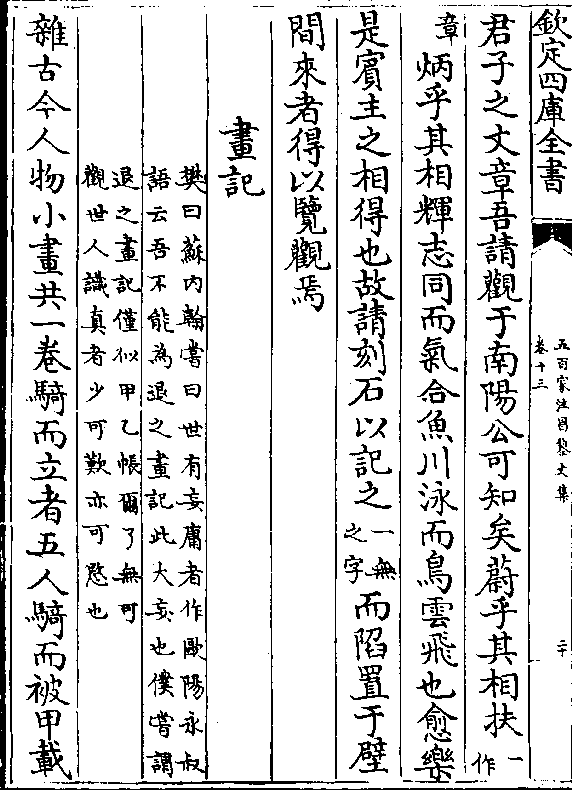 欽定四庫全書
五百家注昌黎文集
卷十三
二十
君子之文章吾請觀于南陽公可知矣蔚乎其相扶一作
章炳乎其相輝志同而氣合魚川泳而鳥雲飛也愈樂
是賓主之相得也故請刻石以記之一無之字而陷置于壁
間來者得以覽觀焉
畫記
樊曰蘇内翰嘗曰世有妄庸者作歐陽永叔
語云吾不能為退之畫記此大妄也僕嘗謂
退之畫記僅似甲乙帳爾了無可
觀世人識真者少可歎亦可愍也
雜古今人物小畫共一卷騎而立者五人騎而被甲載